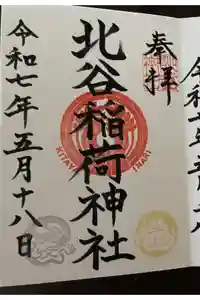 奉拝
北谷稲荷神社
令和七年五月十八日
KITAYA INARI